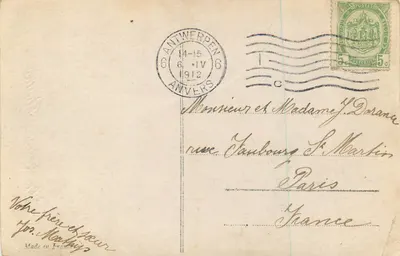 ANTWERPEN
14-15
6 6
6 · IV
1912
ANVERS
1
C
5 5
Monsieur et Madame J. Durance
rue Faubourg St Martin
Paris
France
Votre frère et sœur
Jos. Mathijs
Made in